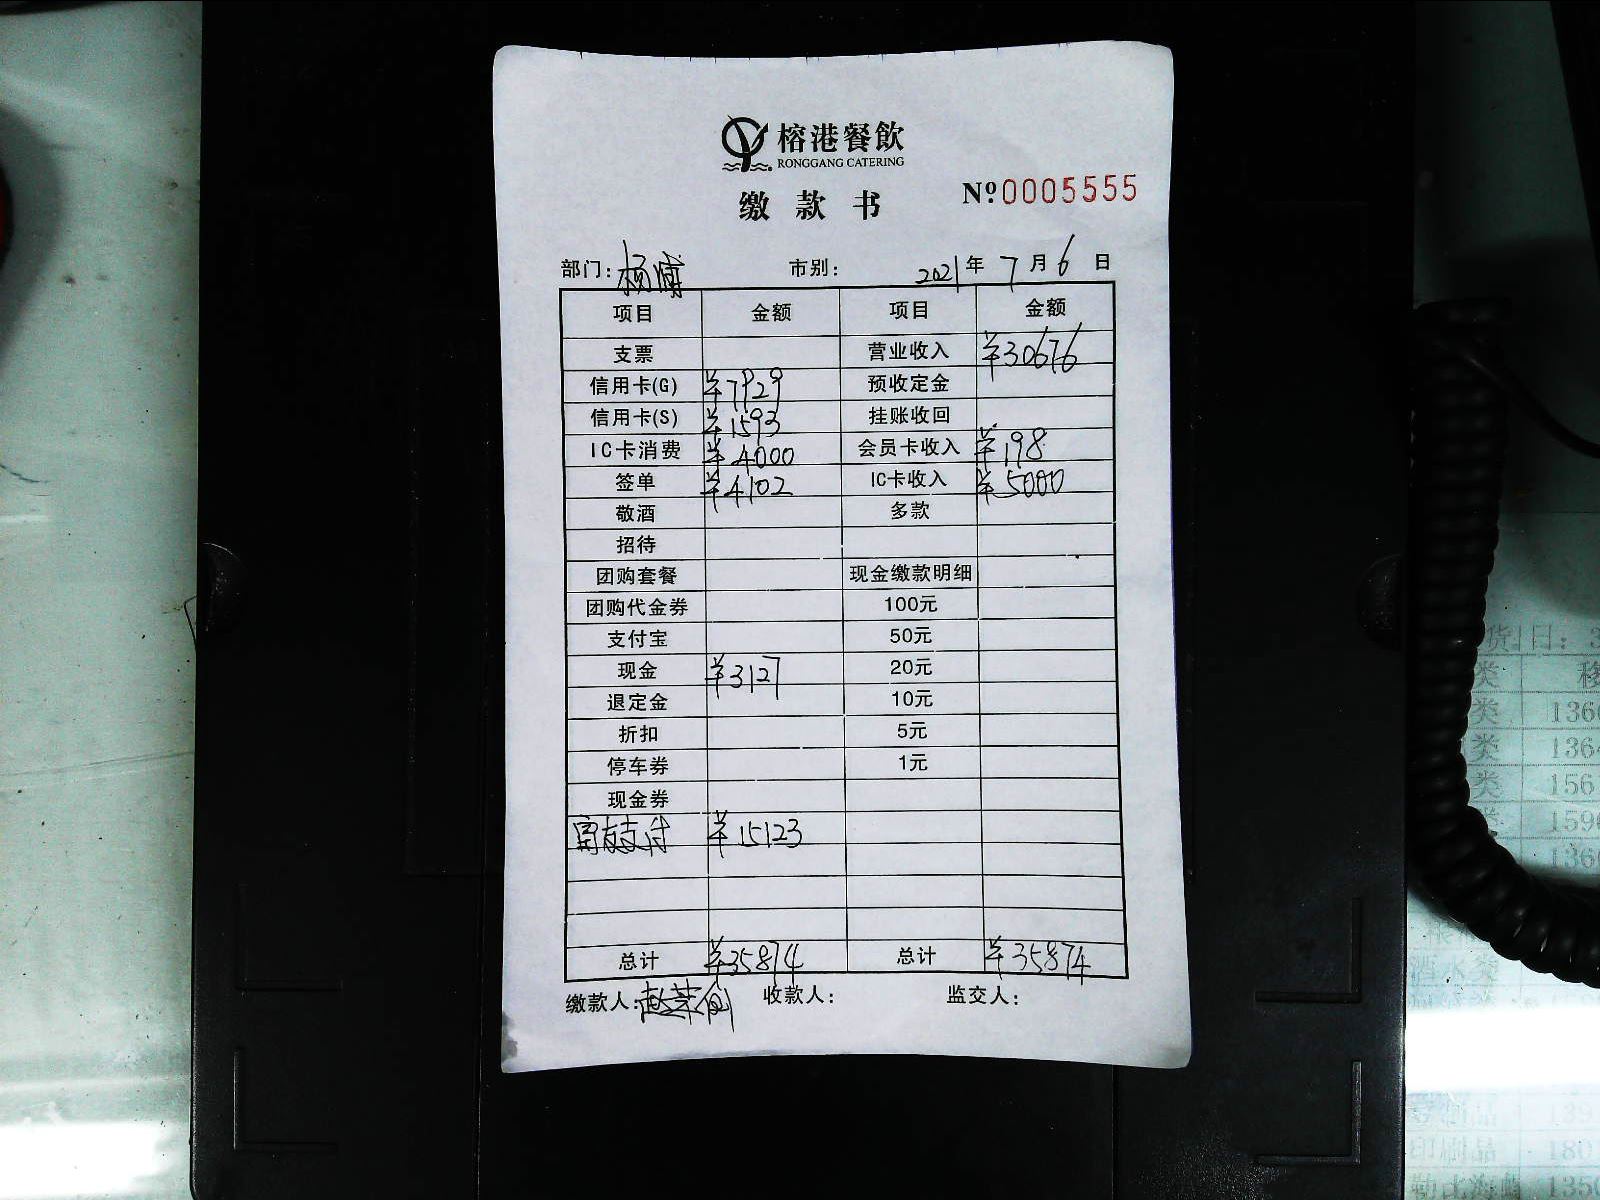 榕港餐飲
RONGGANG CATERING
缴款书 №0005555
部门: 杨浦 市别: 2021年7月6日
项目 金额 项目 金额
支票 营业收入 ¥30676
信用卡(G) ¥7929 预收定金
信用卡(S) ¥1593 挂账收回
IC卡消费 ¥4000 会员卡收入 ¥198
签单 ¥4102 IC卡收入 ¥5000
敬酒 多款
招待
团购套餐 现金缴款明细
团购代金券 100元
支付宝 50元
现金 ¥3127 20元
退定金 10元
折扣 5元
停车券 1元
现金券
富友支付 ¥15123
总计 ¥35874 总计 ¥35874
缴款人: 收款人: 监交人:
货日: 3
类 移
类 136
类 1364
类 156
类 159
136
酒水类
印刷品 180
135